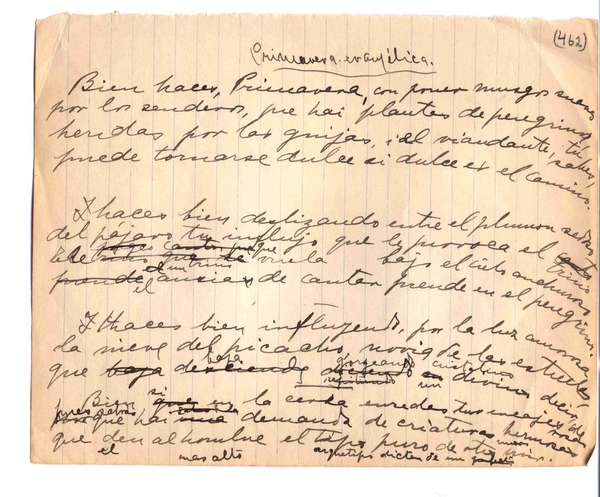 (462)
Primavera evangélica.
Bien haces, Primavera, con poner musgos suaves
por los senderos, que hai plantas de peregrinos
heridas por las guijas, i el viandante, tú sabes,
puede tornarse dulce si dulce es el camino.
I haces bien deslizando entre el plumón sedoso
del pájaro tu influjo que le provoca el trino
que vuela bajo el cielo anchuroso
el ansia de cantar prende en el peregrino.
I haces bien influyendo, por la luz amorosa
la nieve del picacho, novia de las estrellas
que baja gorgeando divino decir
Bien si en la cerca enredas tus encajes de rosas
pues sabes que hai demanda de criaturas hermosas
que den al hombre el tipo puro de otro
el mas alto arquetipo dictan de un